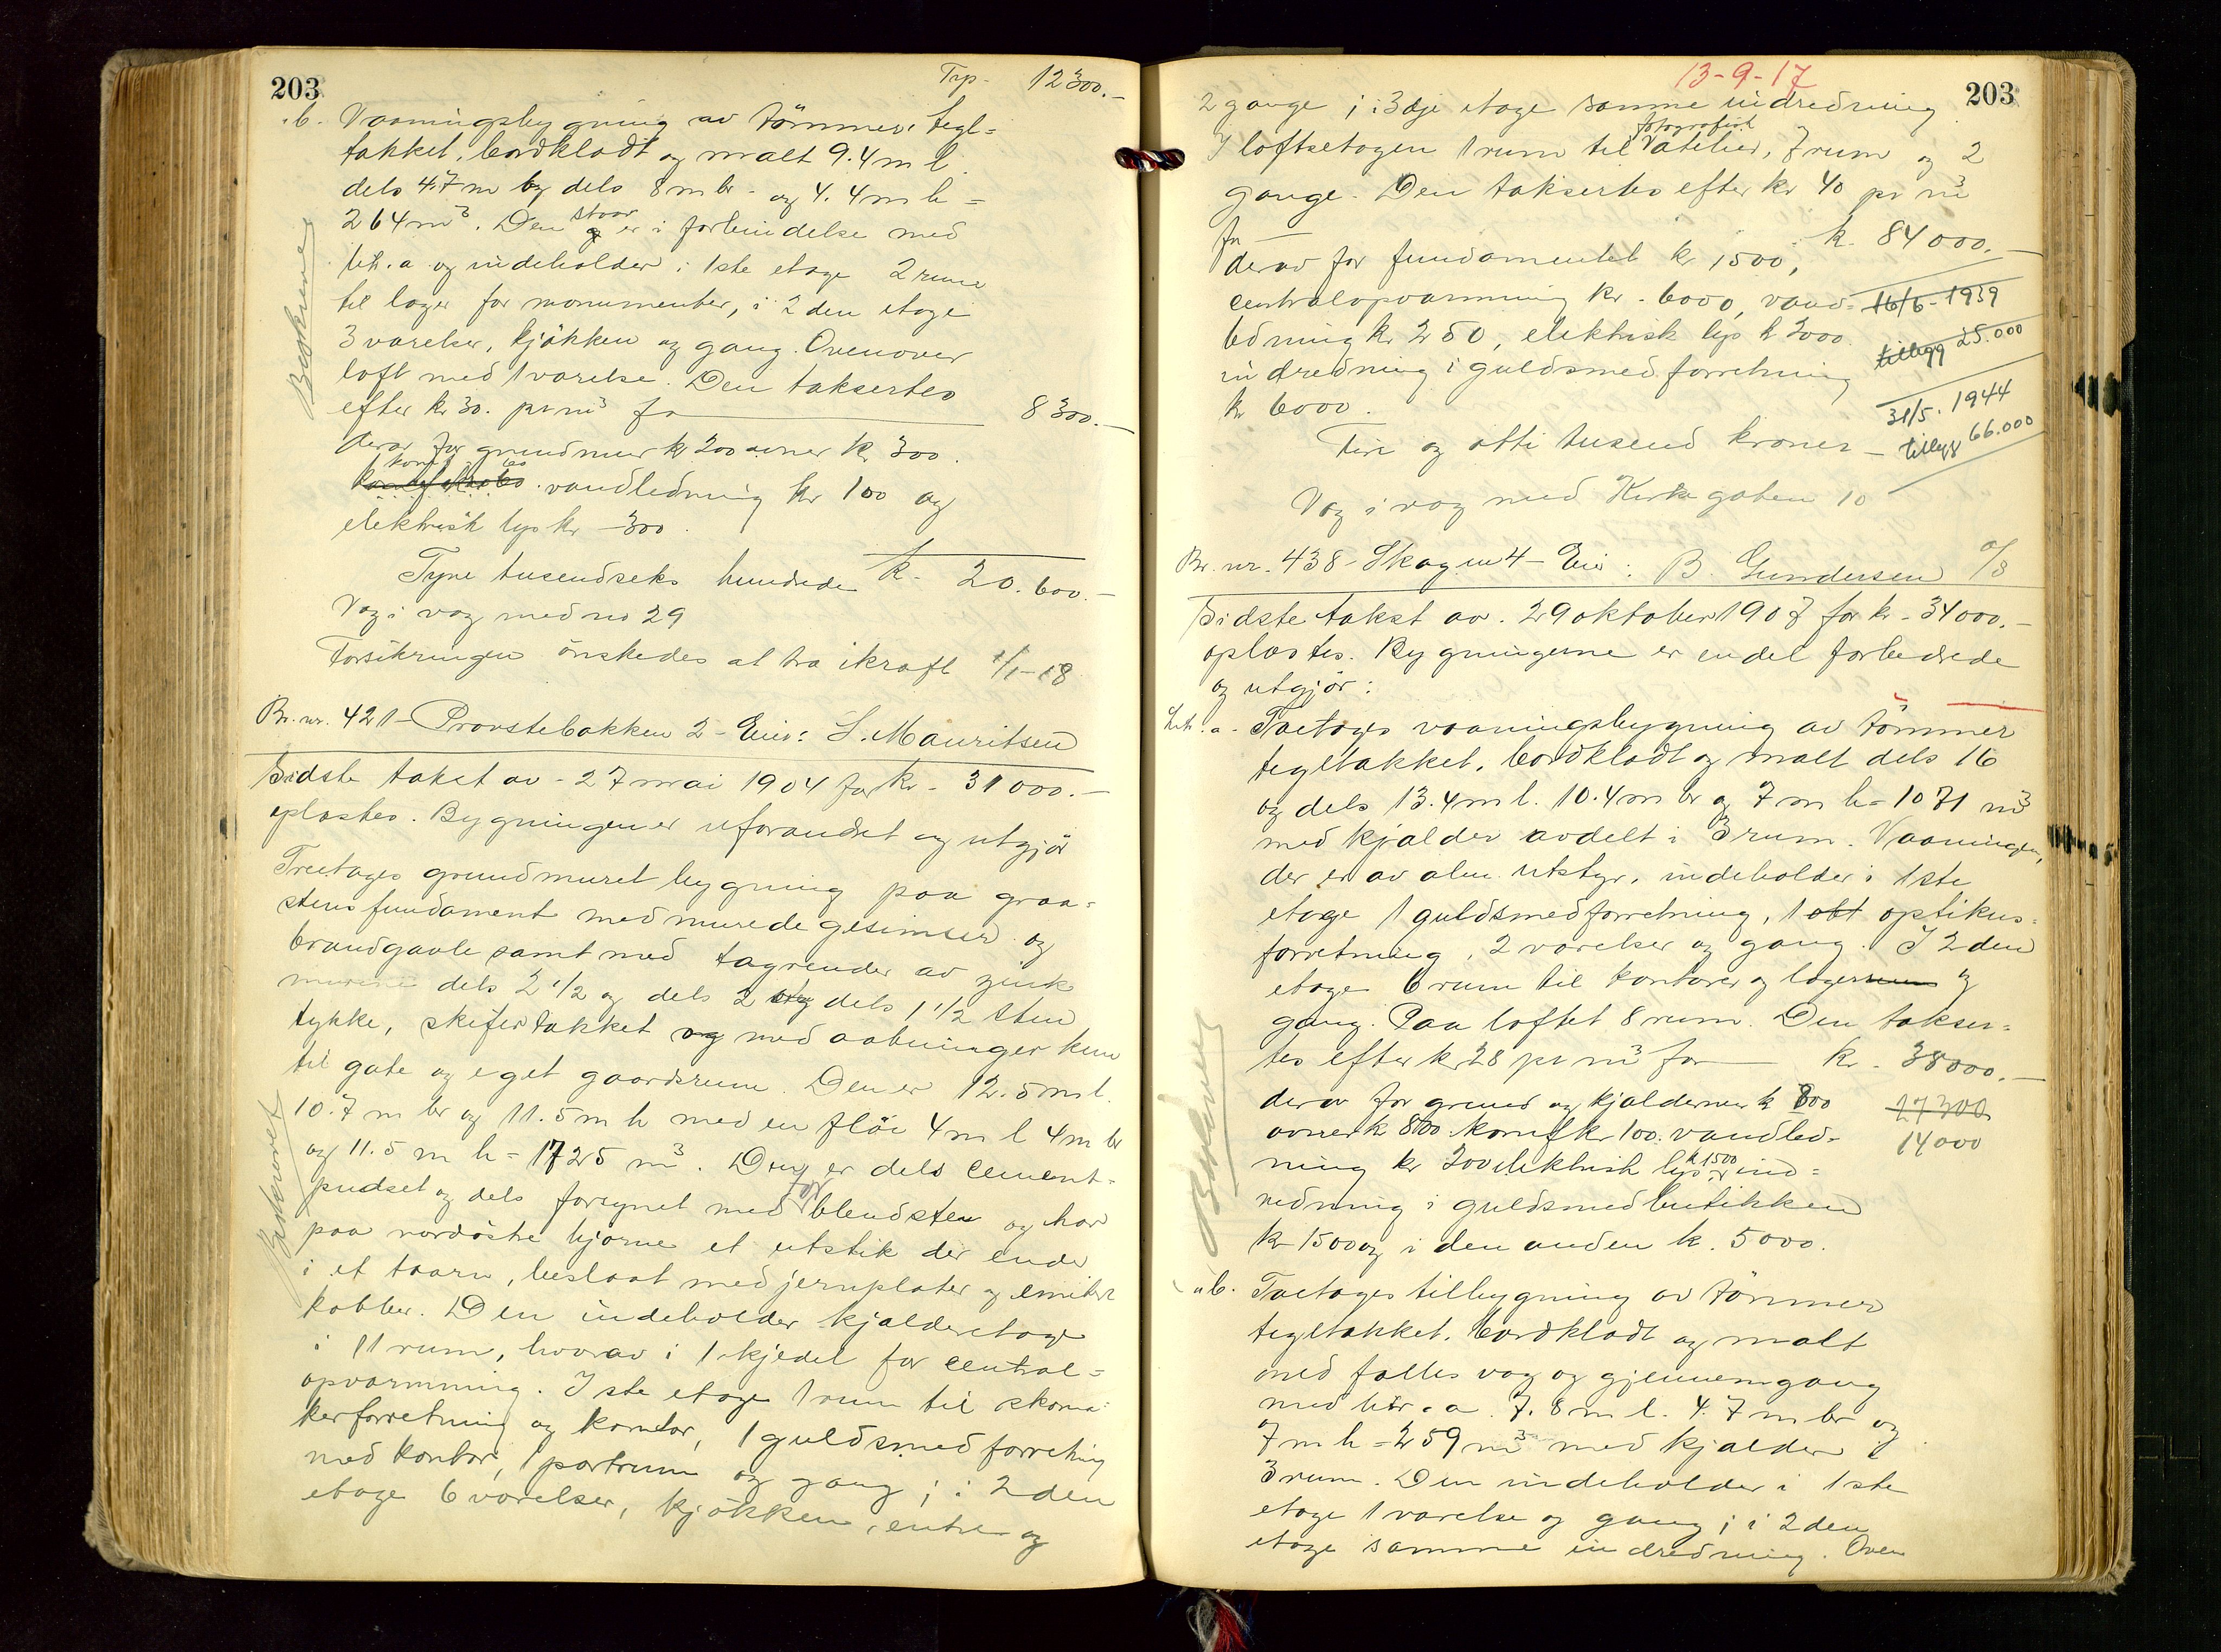 203
Trp. 12300.-
b. Vaaningsbygning av tömmer, tegl=
takket, bordklædt og malt 9.4 m l.
dels 4.7 m og dels 8 m br. og 4.4 m h =
264 m³. Den staar i forbindelse med
lit. a og indeholder i 1ste etage 2 rum
til lager for monumenter, i 2den etage
3 værelser, kjökken og gang. Ovenover
loft med 1 værelse. Den takseres
efter kr 30. pr m³ for 8300.-
derav for grundmur kr 200 ovner kr 300.
komf. vandledning kr 100 og
elektrisk lys kr 300.
Tyve tusen seks hundrede k. 20.600.-
Væg i væg med no 29
Forsikringen önskedes at træ ikraft 1/1-18
Br. nr. 421 - Provstebakken 2 - Eier: S. Mauritsen
Sidste takst av 27 mai 1904 for kr. 31000.-
oplæstes. Bygningen er uforandret og utgjör
Treetages grundmuret bygning paa graa=
stens fundament med murede gesimser og
brandgavle samt med tagrender av zink
murene dels 2 1/2 og dels 2 og dels 1 1/2 sten
tykke, skifertakket og med aabninger kun
til gate og eget gaardsrum. Den er 12.5 m l.
10.7 m br og 11.5 m h med en flöi 4 m l 4 m br
og 11.5 m h = 1725 m³. Den er dels cement=
pudset og dels forsynet med for blendsten og har
paa nordöstre hjörne et utstik der ender
i et taarn, beslaat med jernplater og imitert
kobber. Den indeholder kjælderetage
i 11 rum, hvorav i 1 kjedel for central=
opvarmning. I 1ste etage 1 rum til skoma=
kerforretning og kontor, 1 guldsmedforretning
med kontor, 1 portrum og gang; i 2den
etage 6 værelser, kjökken, entre og
Beskrevet
Beskrevet
13-9-17
203
2 gange; i 3dje etage samme indredning
I loftsetagen 1 rum til fotografisk atelier, 7 rum og 2
gange. Den takseres efter kr 40 pr m³
for k. 84000.-
derav for fundamentet kr 1500,
centralopvarmning kr. 6000, vand=
ledning kr 250, elektrisk lys k 2000.
indredning i guldsmedforretning
kr 6000.
16/6-1939
tillegg 25.000
31/5. 1944
tillegg 66.000
Fire og otti tusend kroner -
Væg i væg med Kirkegaten 10
Br. nr. 438 - Skagen 4 - Eier: B. Gundersen
Sidste takst av 29 oktober 1907 for kr. 34000.-
oplæstes. Bygningerne er endel forbedrede
og utgjör:
Lit. a. Toetages vaaningsbygning av tömmer
tegltakket, bordklædt og malt dels 16
og dels 13.4 m l. 10.4 m br og 7 m h = 1071 m³
med kjælder avdelt i 3 rum. Vaaningen,
der er av alm utstyr, indeholder i 1ste
etage 1 guldsmedforretning, 1 obt optikus=
forretning, 2 værelser og gang. I 2den
etage 6 rum til kontorer og lagerrum og
gang. Paa loftet 8 rum. Den takser=
tes efter kr 28 pr m³ for kr. 38000.-
derav for grund og kjældermur k 800
ovner k 800. komf kr 100. vandled-
ning kr 200 elektrisk lys k 1500 ind=
redning i guldsmedbutikken
kr 1500 og i den anden k. 5000.
17300
14000
" b. Toetages tilbygning av tömmer
tegltakket, bordklædt og malt
med fælles væg og gjennemgang
med litr. a. 7.8 m l. 4.7 m br og
7 m h = 259 m³ med kjælder i
3 rum. Den indeholder i 1ste
etage 1 værelse og gang; i 2den
etage samme indredning. Oven
Beskrevet